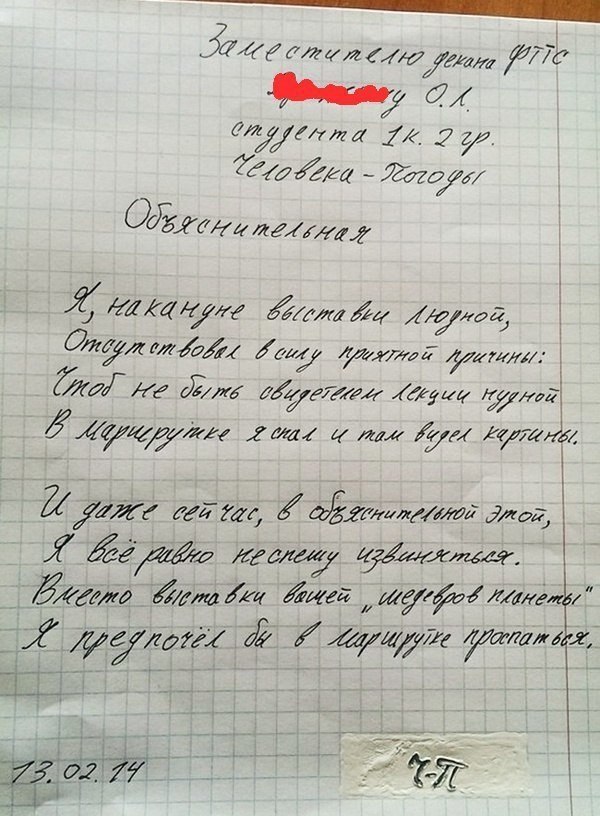 Заместителю декана ФТТС
у О.Л.
студента 1к. 2 гр.
Человека-Погоды
Объяснительная
Я, накануне выставки людной,
Отсутствовал в силу приятной причины:
Чтоб не быть свидетелем лекции нудной
В маршрутке я спал и там видел картины.
И даже сейчас, в объяснительной этой,
Я всё равно не спешу извиняться.
Вместо выставки вашей „шедевров планеты"
Я предпочёл бы в маршрутке проспаться.
13.02.14
Ч-П